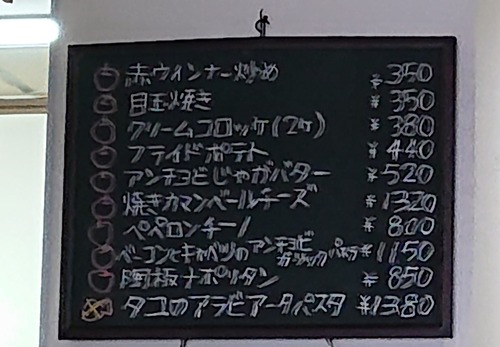 赤ウィンナー炒め ¥350
目玉焼き ¥350
クリームコロッケ(2ケ) ¥380
フライドポテト ¥440
アンチョビじゃがバター ¥520
焼きカマンベールチーズ ¥1320
ペペロンチーノ ¥800
ベーコンとキャベツのアンチョビガーリックパスタ ¥1150
ナポリタン ¥850
タコのアラビアータパスタ ¥1380